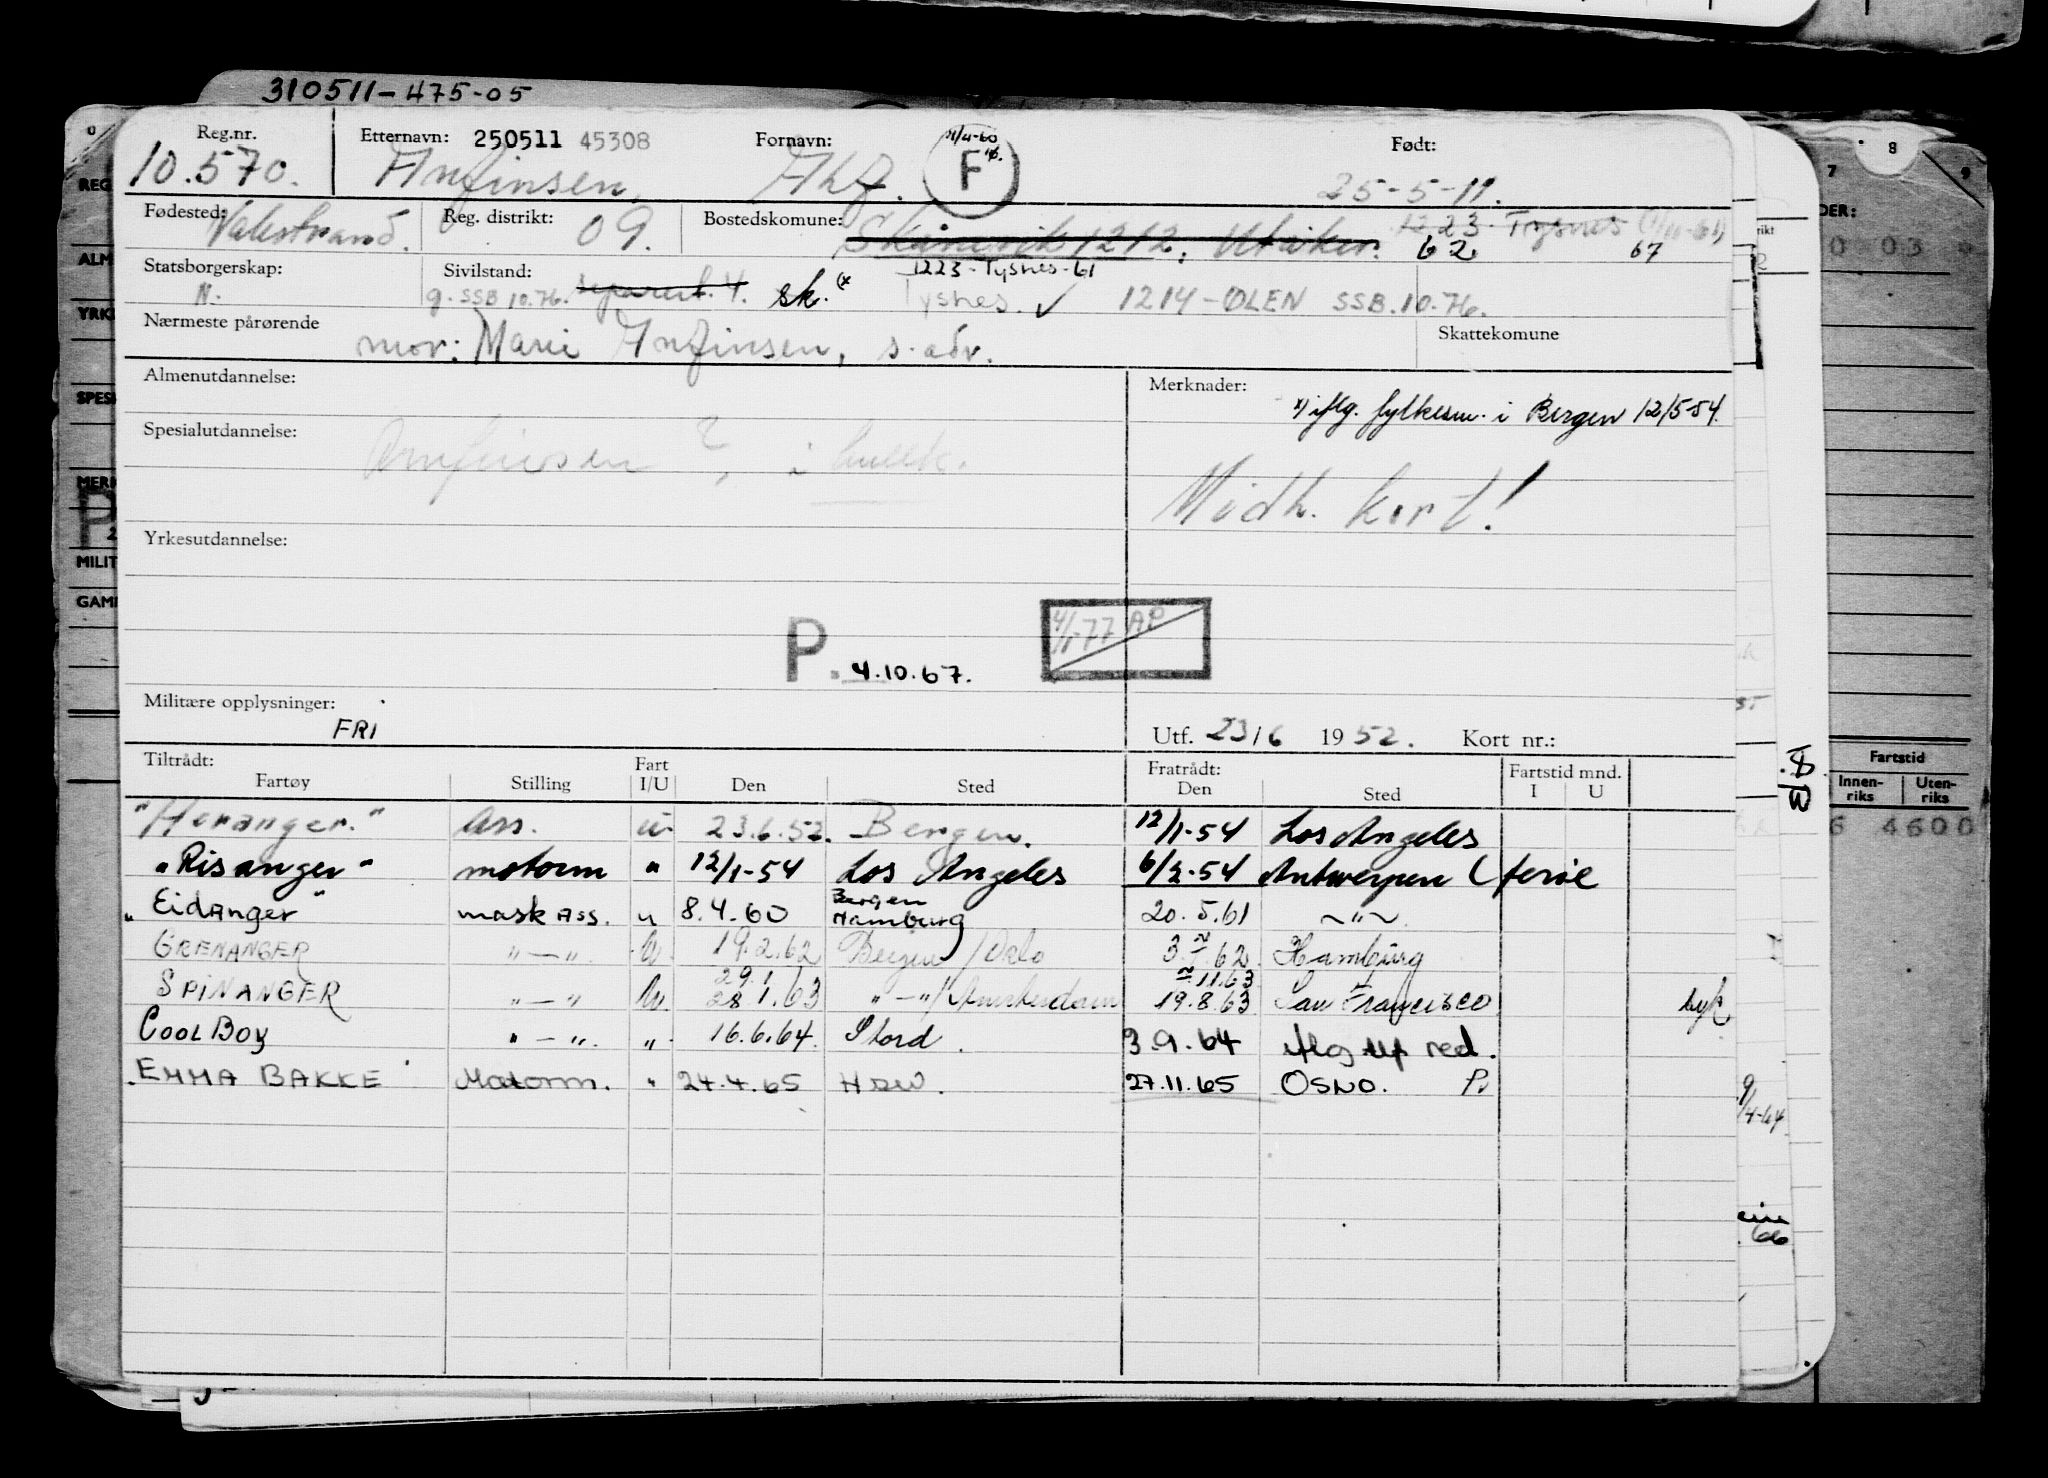 310511-475-05
Reg.nr. Etternavn: 250511 45308 Fornavn: 11/4-60 F Født:
10.570. Anfinsen, Alf. 25-5-11.
Fødested: Valestrand. Reg. distrikt: 09. Bostedskomune: Skånevik 1212, Utåker. 1223 Tysnes (1/11-61)
62 67
1223-Tysnes-61
Statsborgerskap: N. Sivilstand: g. SSB 10.76. separert. 4. sk. (x Tysnes. ✓ 1214-ØLEN SSB.10.76.
Nærmeste pårørende mor: Marie Anfinsen, s. adr. Skattekomune
Almenutdannelse: Merknader:
x) iflg. fylkesm. i Bergen 12/5-54.
Spesialutdannelse: Amfinsen ?, i hullk.
Midh. kort!
Yrkesutdannelse:
P. 4.10.67. 4/1-77 AP
Militære opplysninger: FRI Utf. 23/6 1952. Kort nr.:
Tiltrådt: Fart Fratrådt: Fartstid mnd.
Fartøy Stilling I/U Den Sted Den Sted I U
"Heranger." Ass. u. 23.6.52. Bergen. 12/1-54 Los Angeles
"Risanger" motorm " 12/1-54 Los Angeles 6/2-54 Antwerpen (ferie
"Eidanger" mask ass. u 8.4.60 Bergen Hamburg 20.5.61 ~"~
GRENANGER "-". U. 19.2.62 Bergen/Oslo 3.7.62. Hamburg
SPINANGER "-" U. 29.1 28.1.63 "-"/Amsterdam 11.63 19.8.63 San Francisco syk
Cool Boy "-". ". 16.6.64. Stord. 3.9.64 iflg utf red.
EMMA BAKKE Motorm. " 24.4.65 HDW. 27.11.65 OSLO. P.
REG
ALM
YRK
SPES
MERK
P
2
MILIT
GAM
7 8 9
DER:
0 03
Fartstid
Innen-riks Uten-riks
6 4600
9/4-64
66